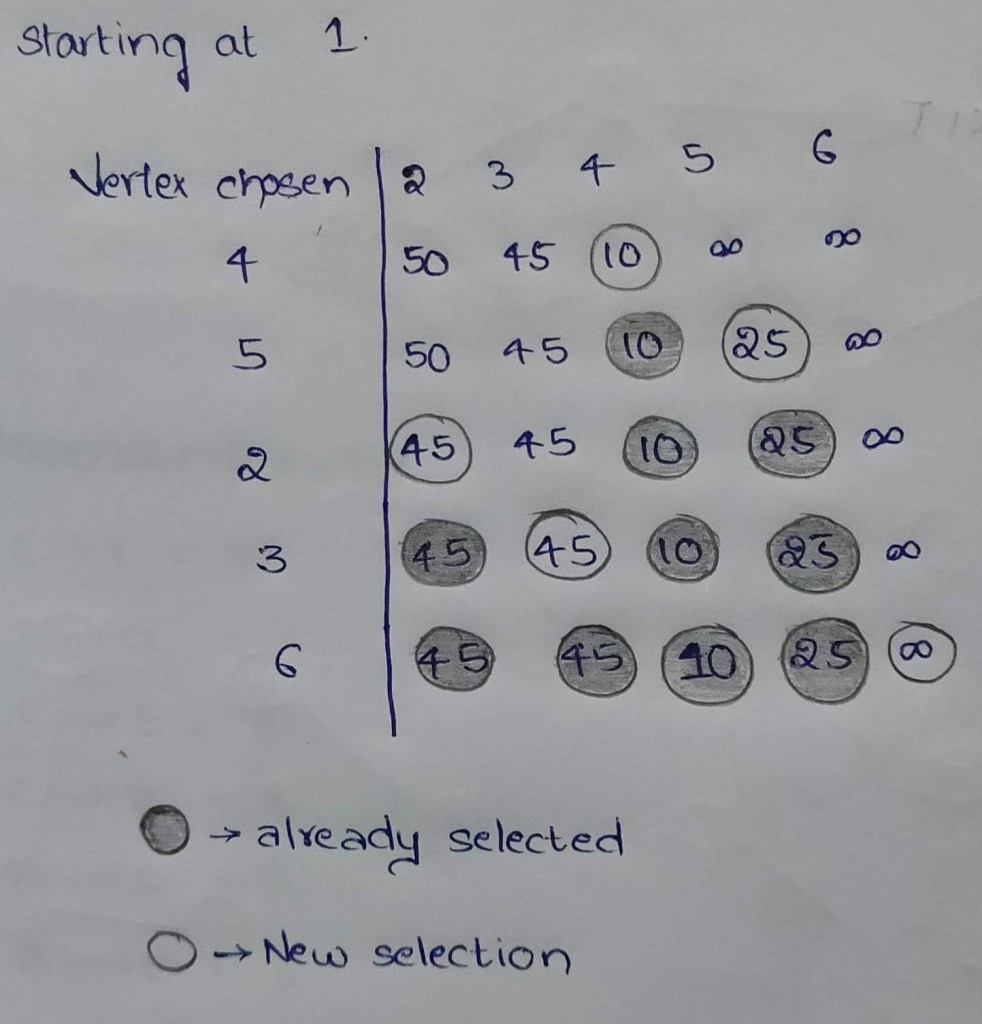 Starting at 1.
Vertex chosen 2 3 4 5 6
4 50 45 10 ∞ ∞
5 50 45 10 25 ∞
2 45 45 10 25 ∞
3 45 45 10 25 ∞
6 45 45 10 25 ∞
→ already selected
→ New selection